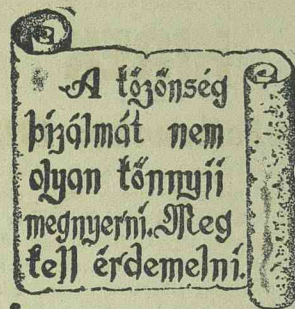 A közönség
bizálmát nem
olyan könnyü
megnyerni. Meg
kell érdemelni.